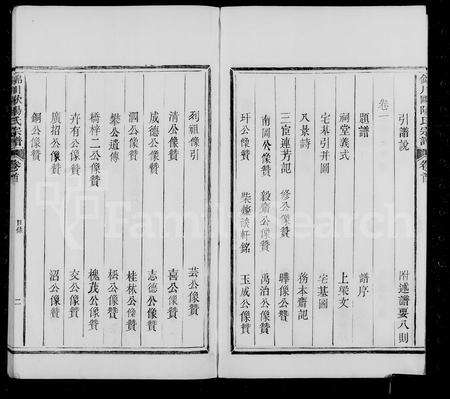 引譜說
附述譜要八則
卷一
題贈
譜序
祠堂義式
上梁文
宅基引并圖
宅基圖
八景詩
務本齋記
三宦連芳記
修公像贊
曄像公贊
南園公像贊
毅齋公像贊
禹治公像贊
玕公像贊
柴軒銘
玉成公像贊
列祖像引
芸公像贊
清公像贊
喜公像贊
成德公像贊
志德公像贊
澗公像贊
桂林公像贊
樂公遺傳
松公像贊
橋梓二公像贊
槐茂公像贊
卉有公像贊
交公像贊
廣招公像贊
沼公像贊
銅公像贊
卷首
目錄
二
FamilySearch